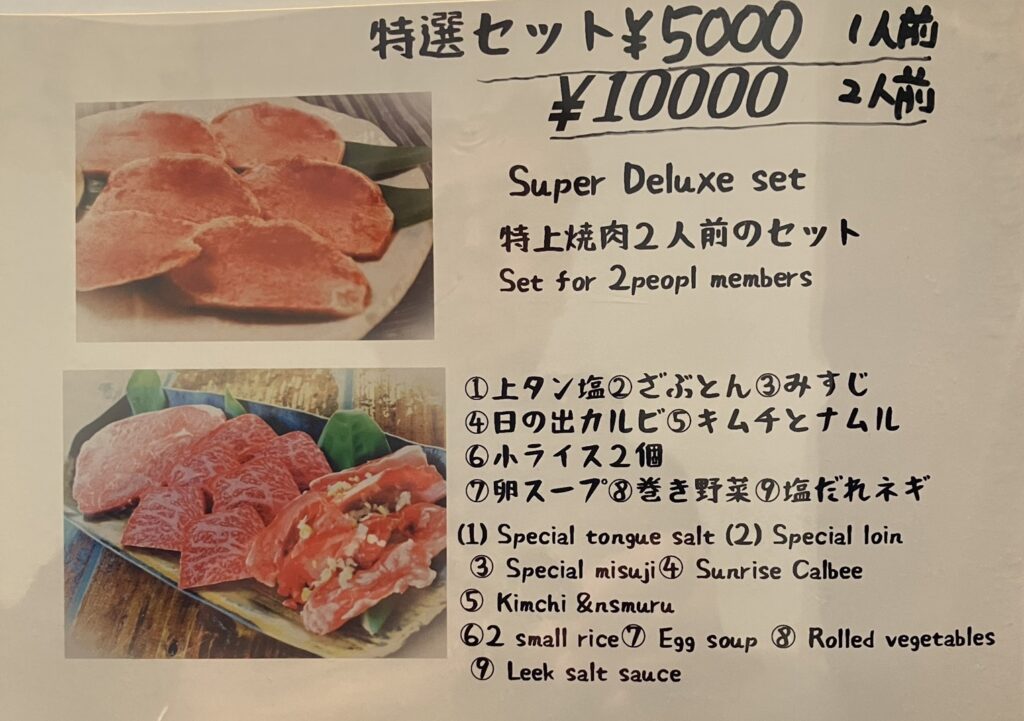 特選セット¥5000 1人前
¥10000 2人前
Super Deluxe set
特上焼肉2人前のセット
Set for 2peopl members
①上タン塩②ざぶとん③みすじ
④日の出カルビ⑤キムチとナムル
⑥小ライス2個
⑦卵スープ⑧巻き野菜⑨塩だれネギ
(1) Special tongue salt (2) Special loin
③ Special misuji④ Sunrise Calbee
⑤ Kimchi &nsmuru
⑥2 small rice⑦ Egg soup ⑧ Rolled vegetables
⑨ Leek salt sauce